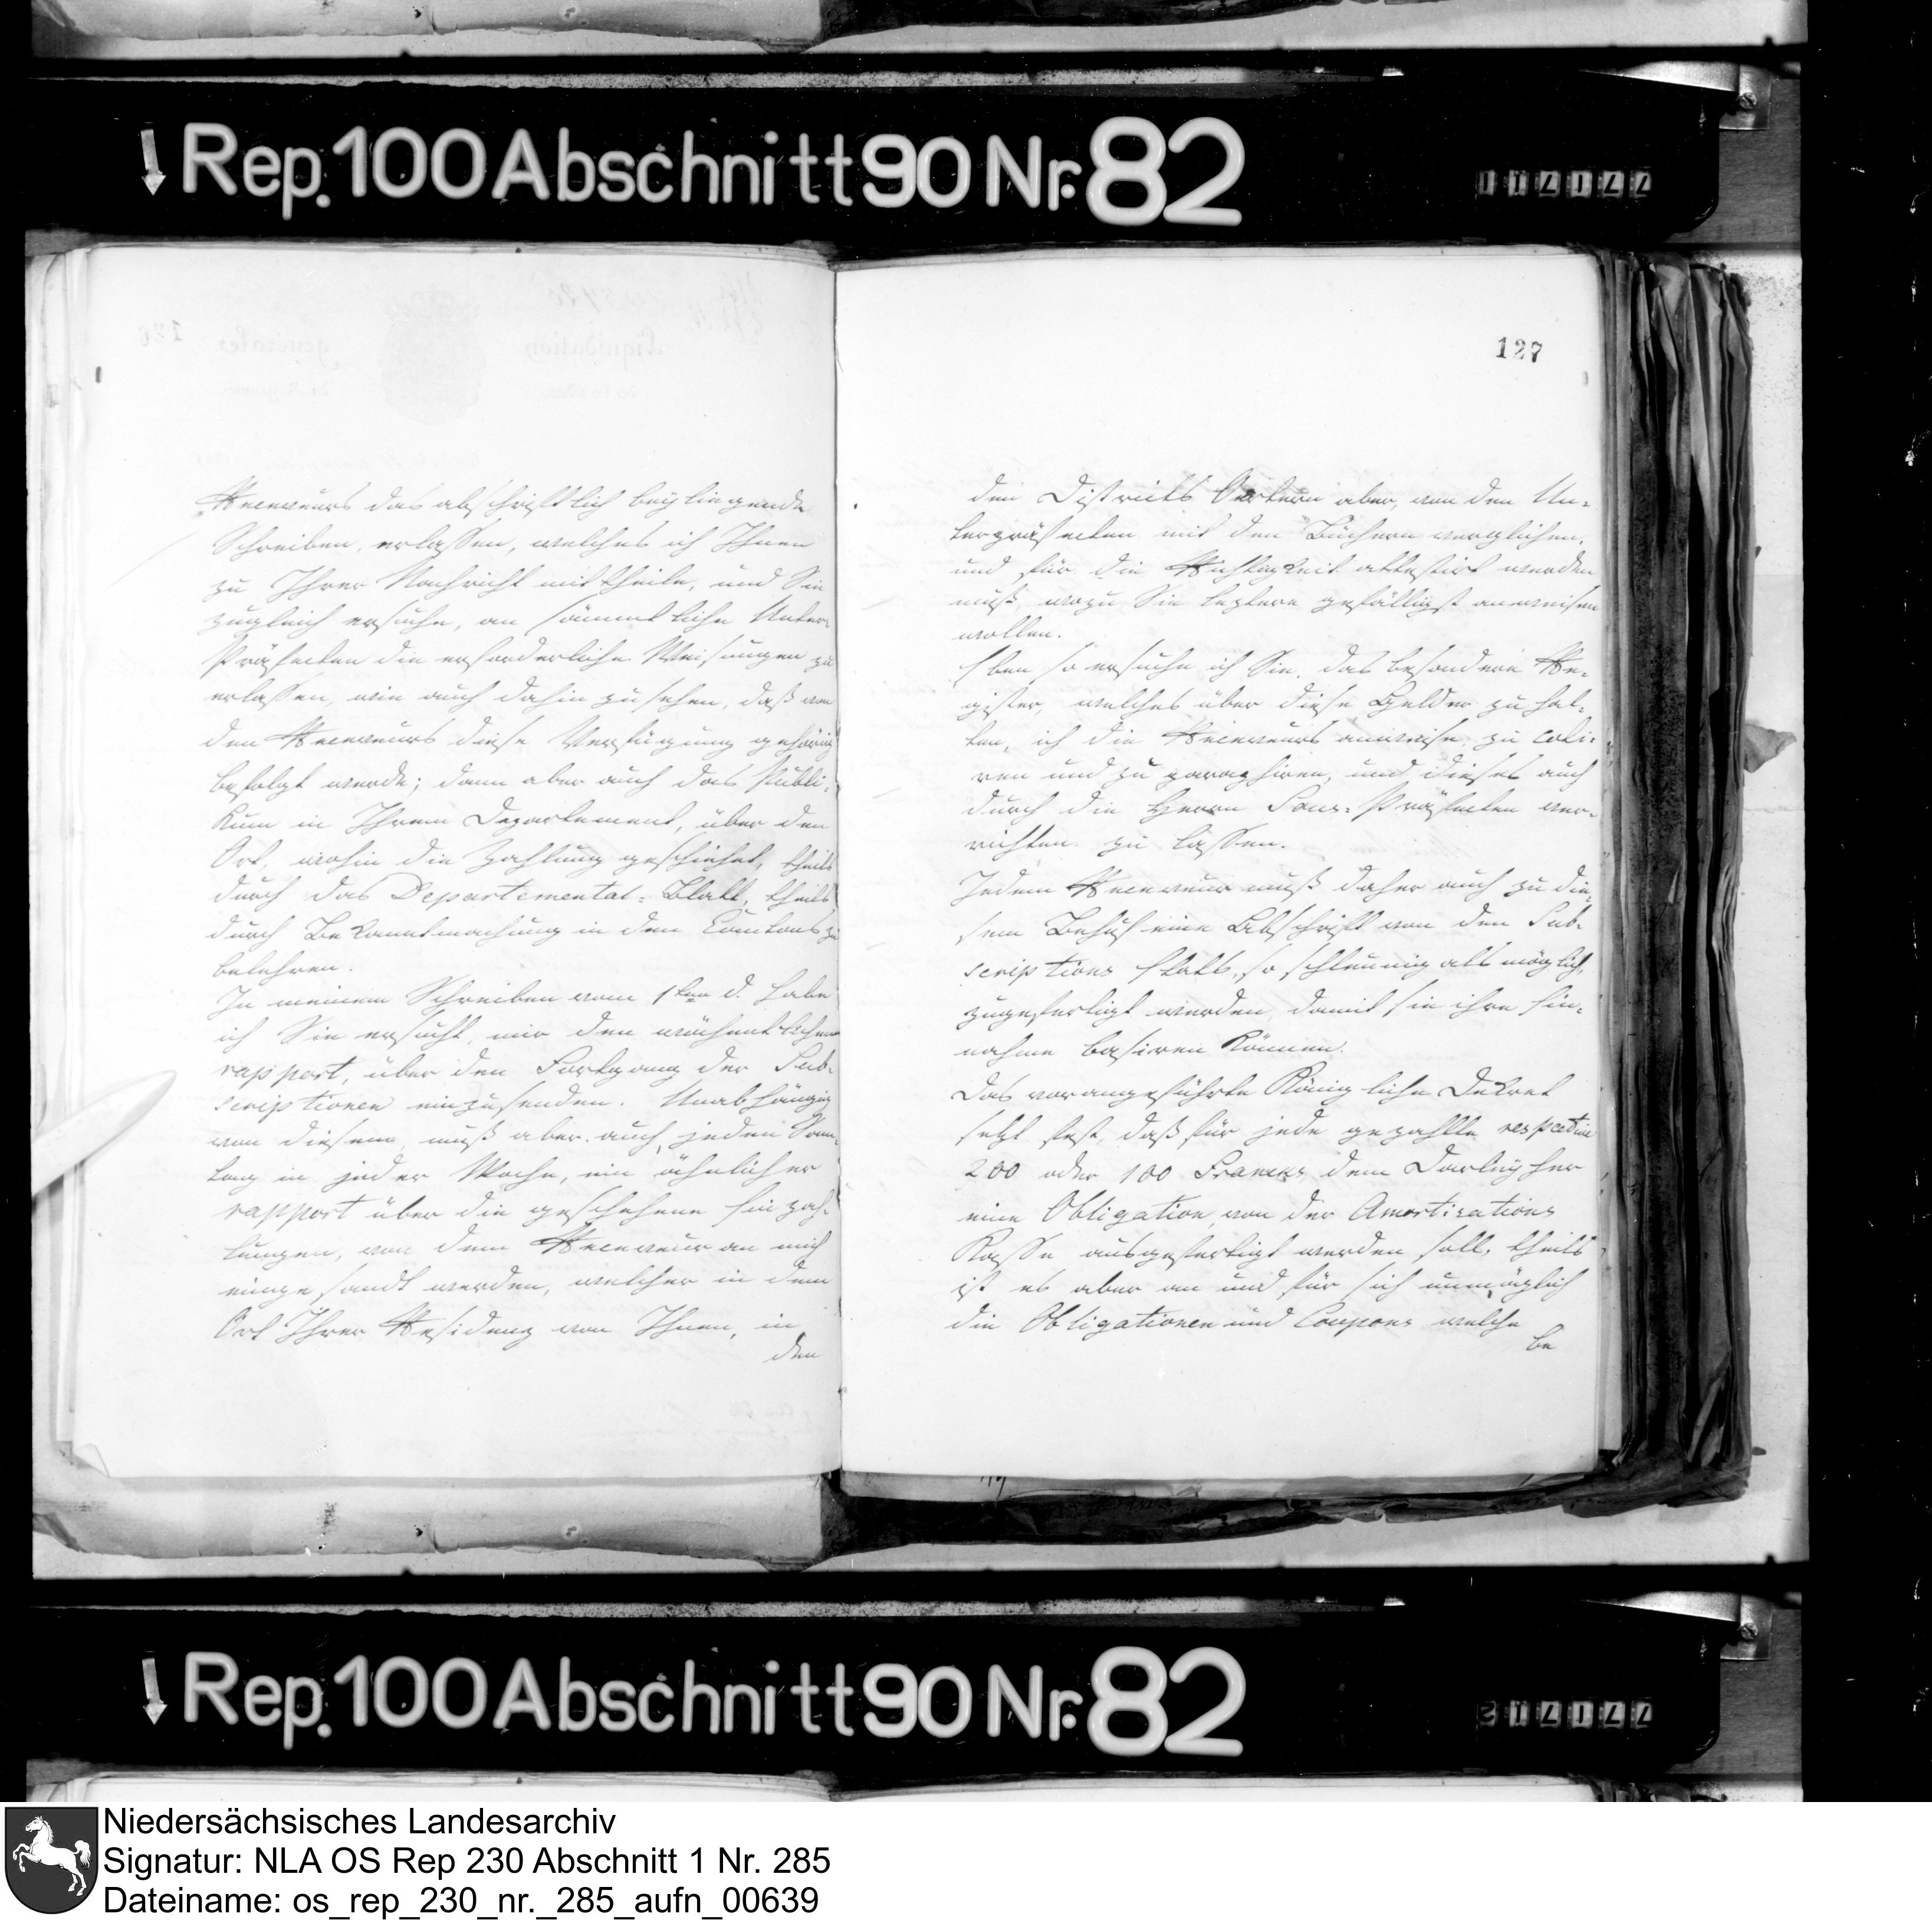 Rep. 100 Abschnitt 90 Nr. 82
77171 1
Receveurs das abschriftlich beyliegende
Schreiben, erlassen, welches ich Ihnen
zu Ihrer Nachricht mittheile, und Sie
zugleich ersuche, an sämmtliche Unter-
Präfecten die erforderliche Weisungen zu
erlassen, wie auch dahin zu sehen, daß von
den Receveurs diese Verfügung gehörig
befolgt werde; dann aber auch das Publi-
kum in Ihrem Departement, über den
Ort, wohin die Zahlung geschiehet, theils
durch das Departemental-Blatt, theils
durch Bekanntmachung in den Cantons zu
belehren.
In meinem Schreiben vom 1ten d. habe
ich Sie ersucht, mir den wöchentlichen
rapport, über den Fortgang der Sub-
scriptionen einzusenden. Unabhängig
von diesem, muß aber auch, jeden Sonn-
tag in jeder Woche, ein ähnlicher
rapport über die geschehene Einzah-
lungen, von dem Receveur an mich
eingesandt werden, welcher in dem
Ort Ihrer Residenz von Ihnen, in
den
127
den Districts Oertern aber, von den Un-
terpräfecten mit den Büchern verglichen,
und für die Richtigkeit attestirt werden
muß, wozu Sie letztere gefälligst anweisen
wollen.
Eben so ersuche ich Sie, das besondere Re-
gister, welches über diese Gelder zu hal-
ten, ich die Receveurs anweise, zu coti-
ren und zu paraphiren, und dieses auch
durch die Herrn Sous-Präfecten ver-
richten zu lassen.
Jedem Receveur muß daher auch zu die-
sem Behuf eine Abschrift von den Sub-
scriptions Etats, so schleunig als möglich,
zugefertigt werden, damit sie ihre Ein-
nahme basiren können.
Das vorangeführte Königliche Dekret
setzt fest, daß für jede gezahlte respective
200 oder 100 Francs, dem Darleyher
eine Obligation, von der Amortisations
Kasse ausgefertigt werden soll, theils
ist es aber an und für sich unmöglich
die Obligationen und Coupons welche
be
Rep. 100 Abschnitt 90 Nr. 82
77171 2
Niedersächsisches Landesarchiv
Signatur: NLA OS Rep 230 Abschnitt 1 Nr. 285
Dateiname: os_rep_230_nr._285_aufn_00639